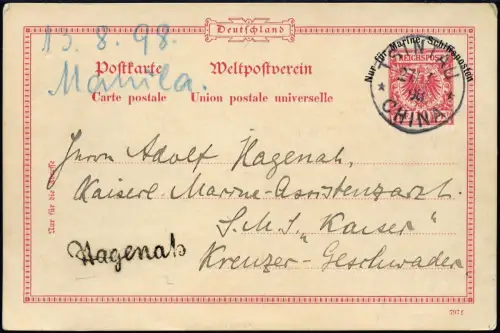 13. 8. 98.
Deutschland
Manila.
Postkarte Weltpostverein
Carte postale Union postale universelle
Nur für Marine-Schiffsposten
REICHSPOST
TSINTAU
98
CHINA
Nur für die Adresse
Herrn Adolf Hagenah,
Kaiserl. Marine-Assistenzarzt.
S. M. S. "Kaiser"
Kreuzer-Geschwader
Hagenah
797 f